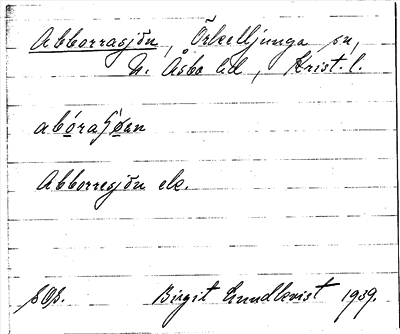 Abborrasjön, Örkelljunga sn,
N. Åsbo hd, Krist. l.
abóraʃøen
Abborresjön ek.
Birgit Lundkvist 1939.